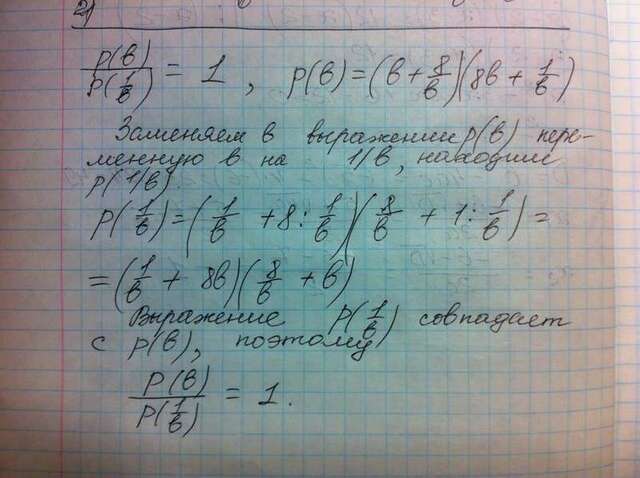 21
p(b)/p(1/b) = 1, p(b)=(b+8/b)(8b+1/b)
Заменяем в выражении p(b) пере-
менную b на 1/b, находим
p(1/b).
p(1/b)=(1/b +8:1/b)(8/b + 1:1/b)=
=(1/b + 8b)(8/b + b)
Выражение p(1/b) совпадает
с p(b), поэтому
p(b)/p(1/b) = 1.